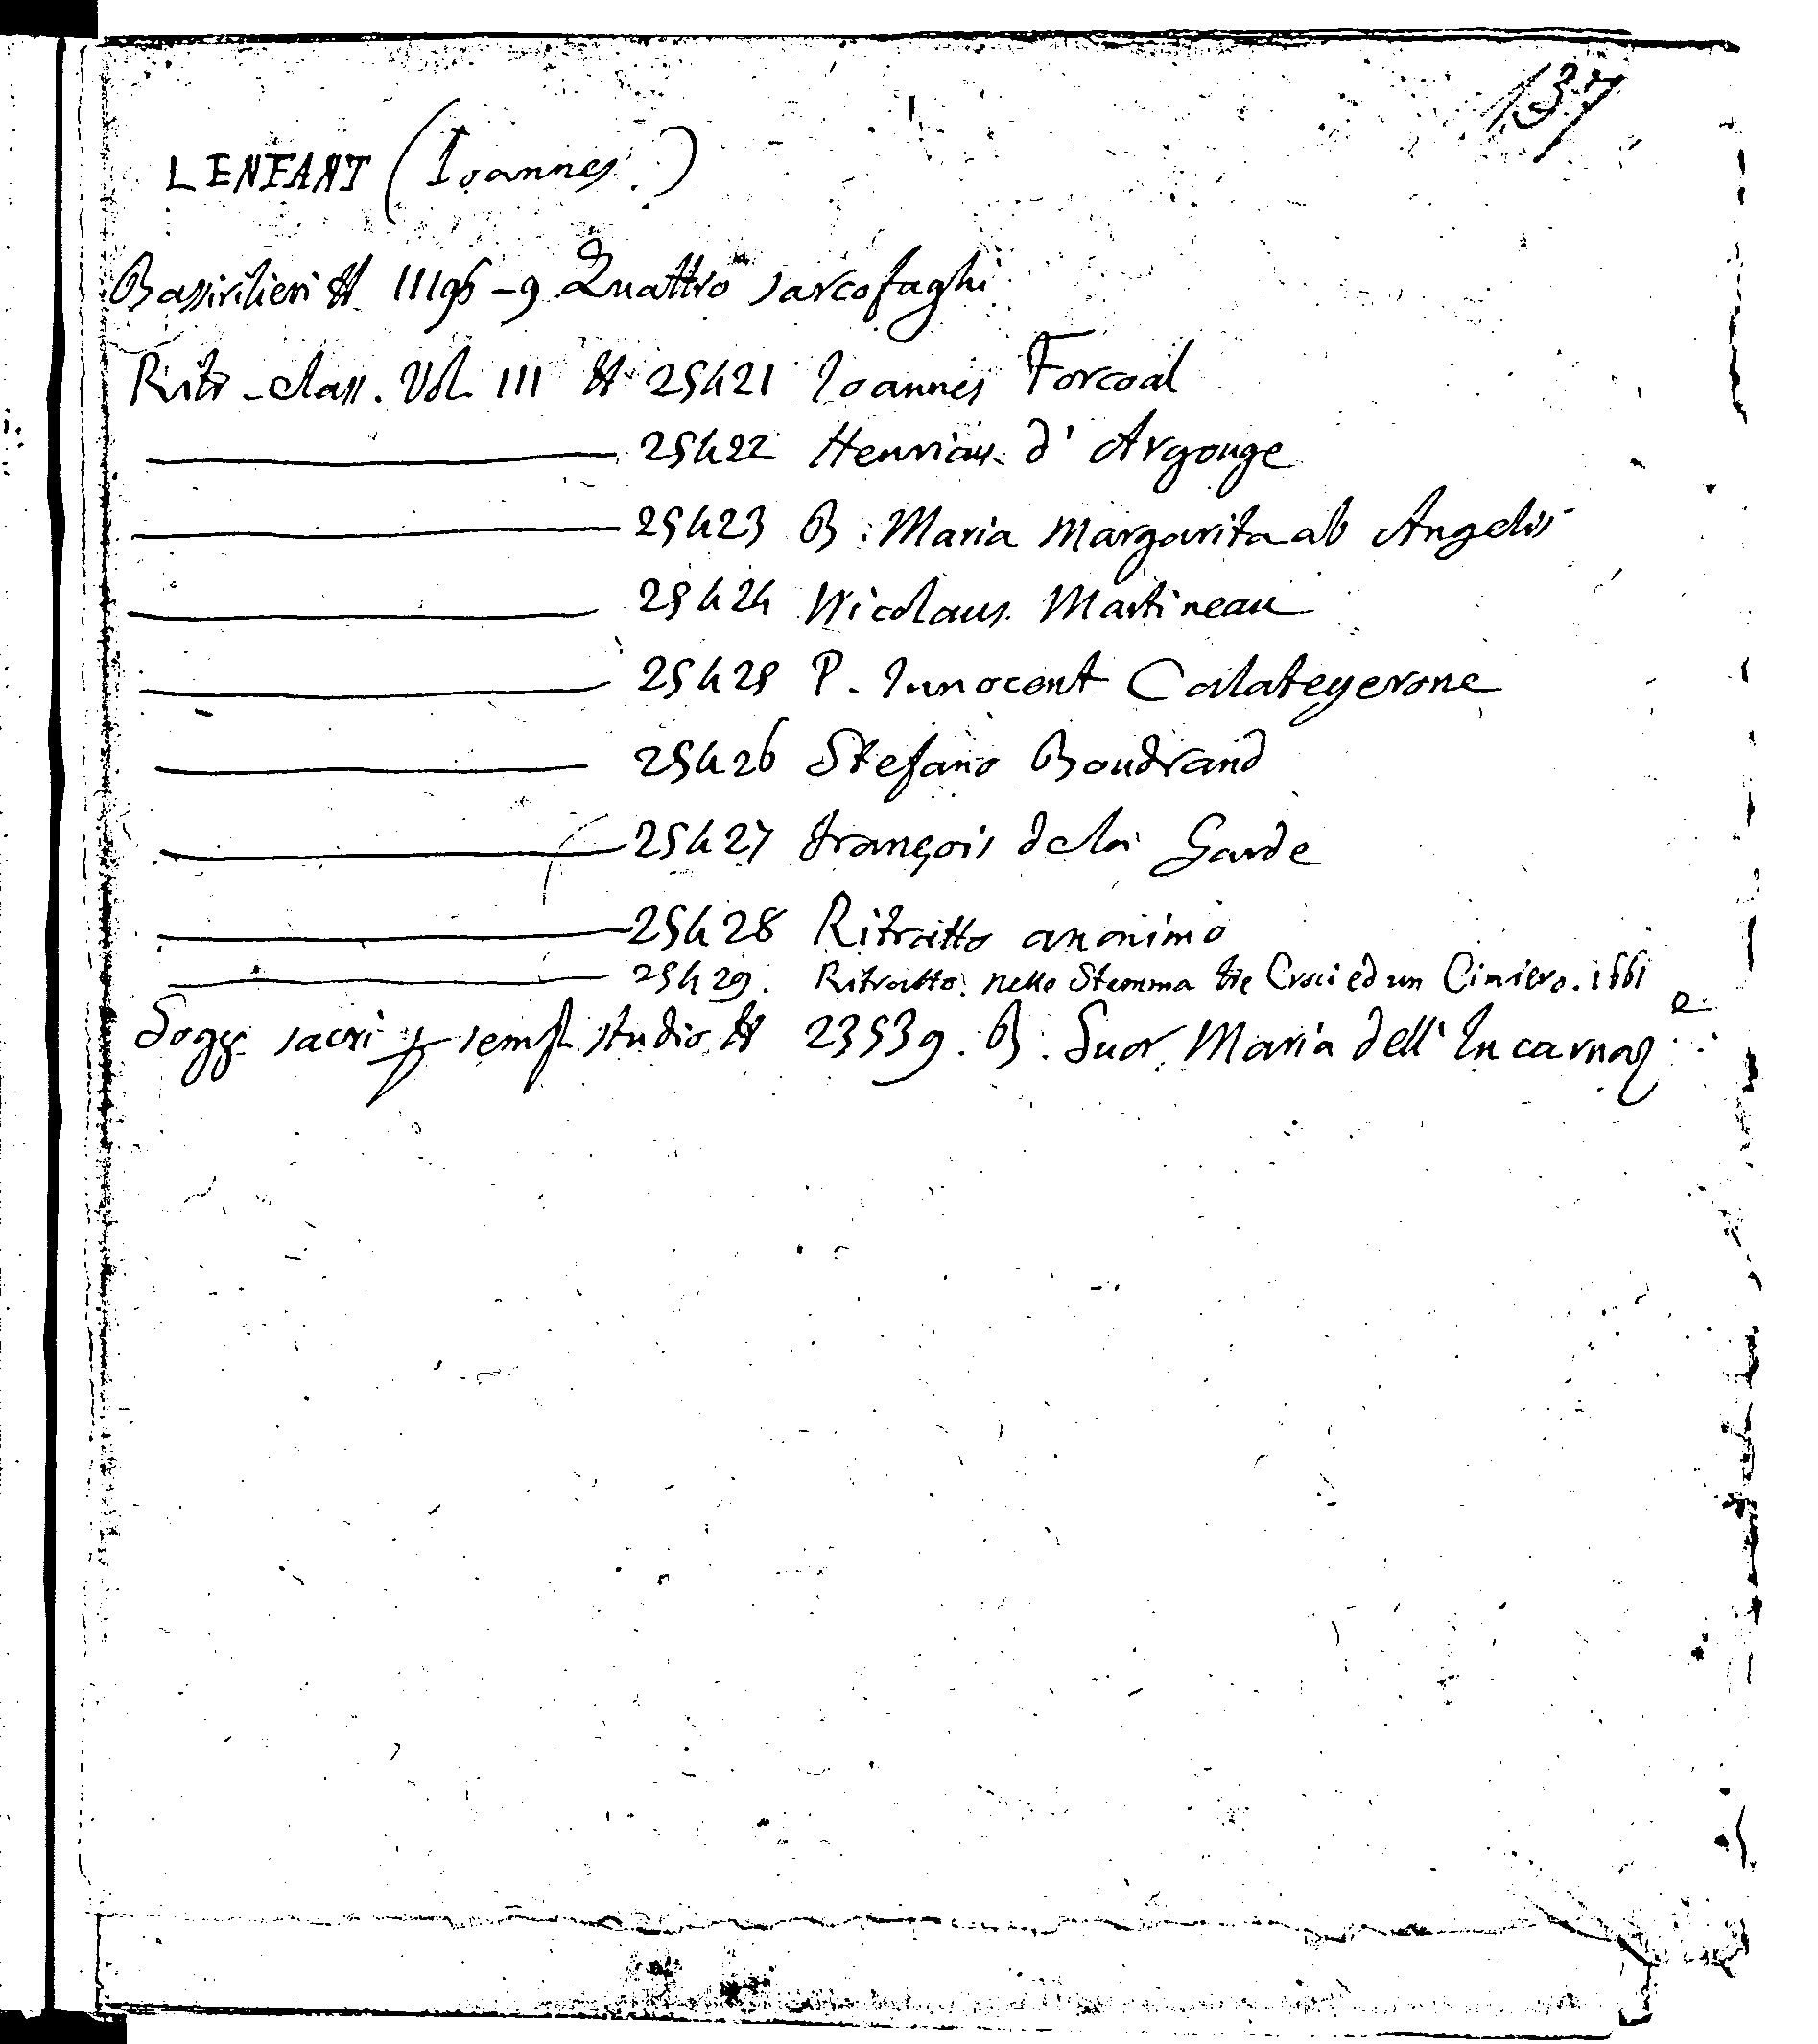 137
LENFANT (Ioannes.)
Bassirilievi # 11196-9 Quattro sarcofaghi
Ritr-class. Vol. III # 25421 Ioannes Forcoal
25422 Henricus d'Argouge
25423 B. Maria Margarita ab Angelis
25424 Nicolaus Martineau
25425 P. Innocent Calategerone
25426 Stefano Boudrand
25427 François de la Garde
25428 Ritratto anonimo
25429. Ritratto nello Stemma tre Croci ed un Cimiero. 1661
Sogg. sacri p sempl. studio # 23539. B. Suor Maria dell'Incarnaze